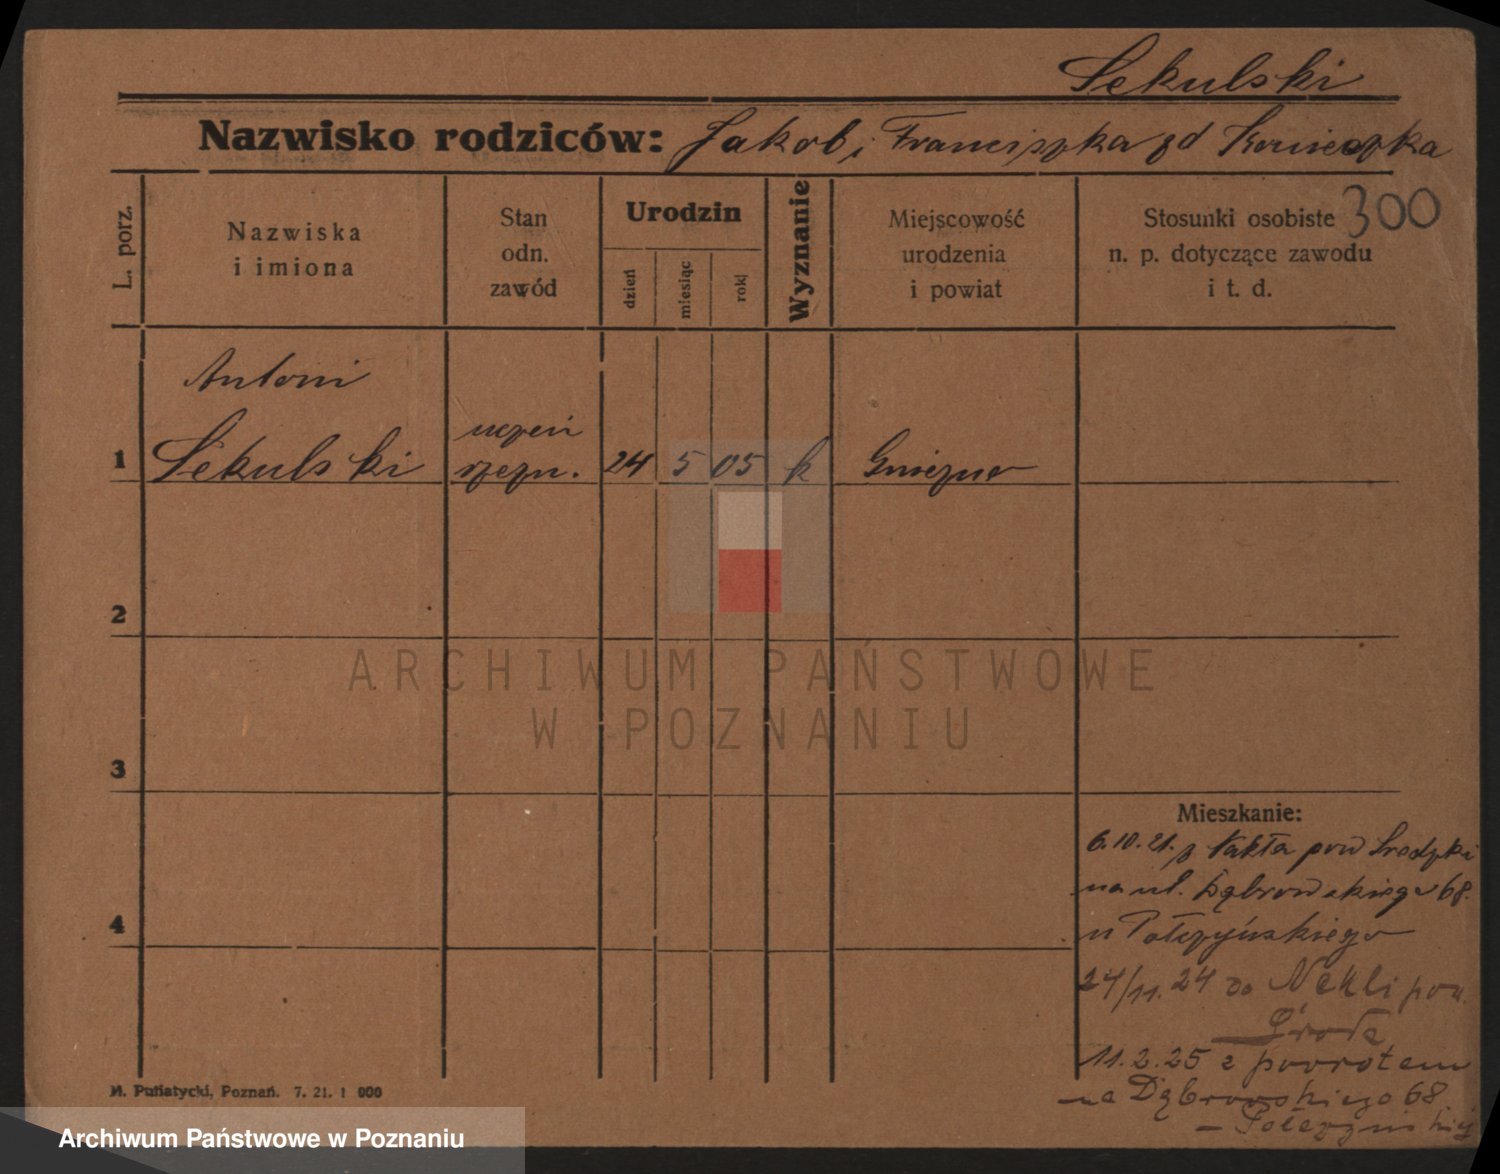 Sekulski
Nazwisko rodziców: Jakob i Franciszka zd Konieczka
300
L. porz.
Nazwiska
i imiona
Stan
odn.
zawód
Urodzin
dzień
miesiąc
rok
Wyznanie
Miejscowość
urodzenia
i powiat
Stosunki osobiste
n. p. dotyczące zawodu
i t. d.
Antoni
1 Sekulski uczeń rzezn. 24 5 05 k Gniezno
2
3
4
ARCHIWUM PAŃSTWOWE
W POZNANIU
Mieszkanie:
6.10.21. z Nakła pow Sredzki
na ul. Dąbrowskiego 68.
u Połczyńskiego
24/11. 24 do Nekli pow.
Środa
11.2.25 z powrotem
na Dąbrowskiego 68
– Połczyńskiej
M. Putiatycki, Poznań. 7. 21. 1 000
Archiwum Państwowe w Poznaniu